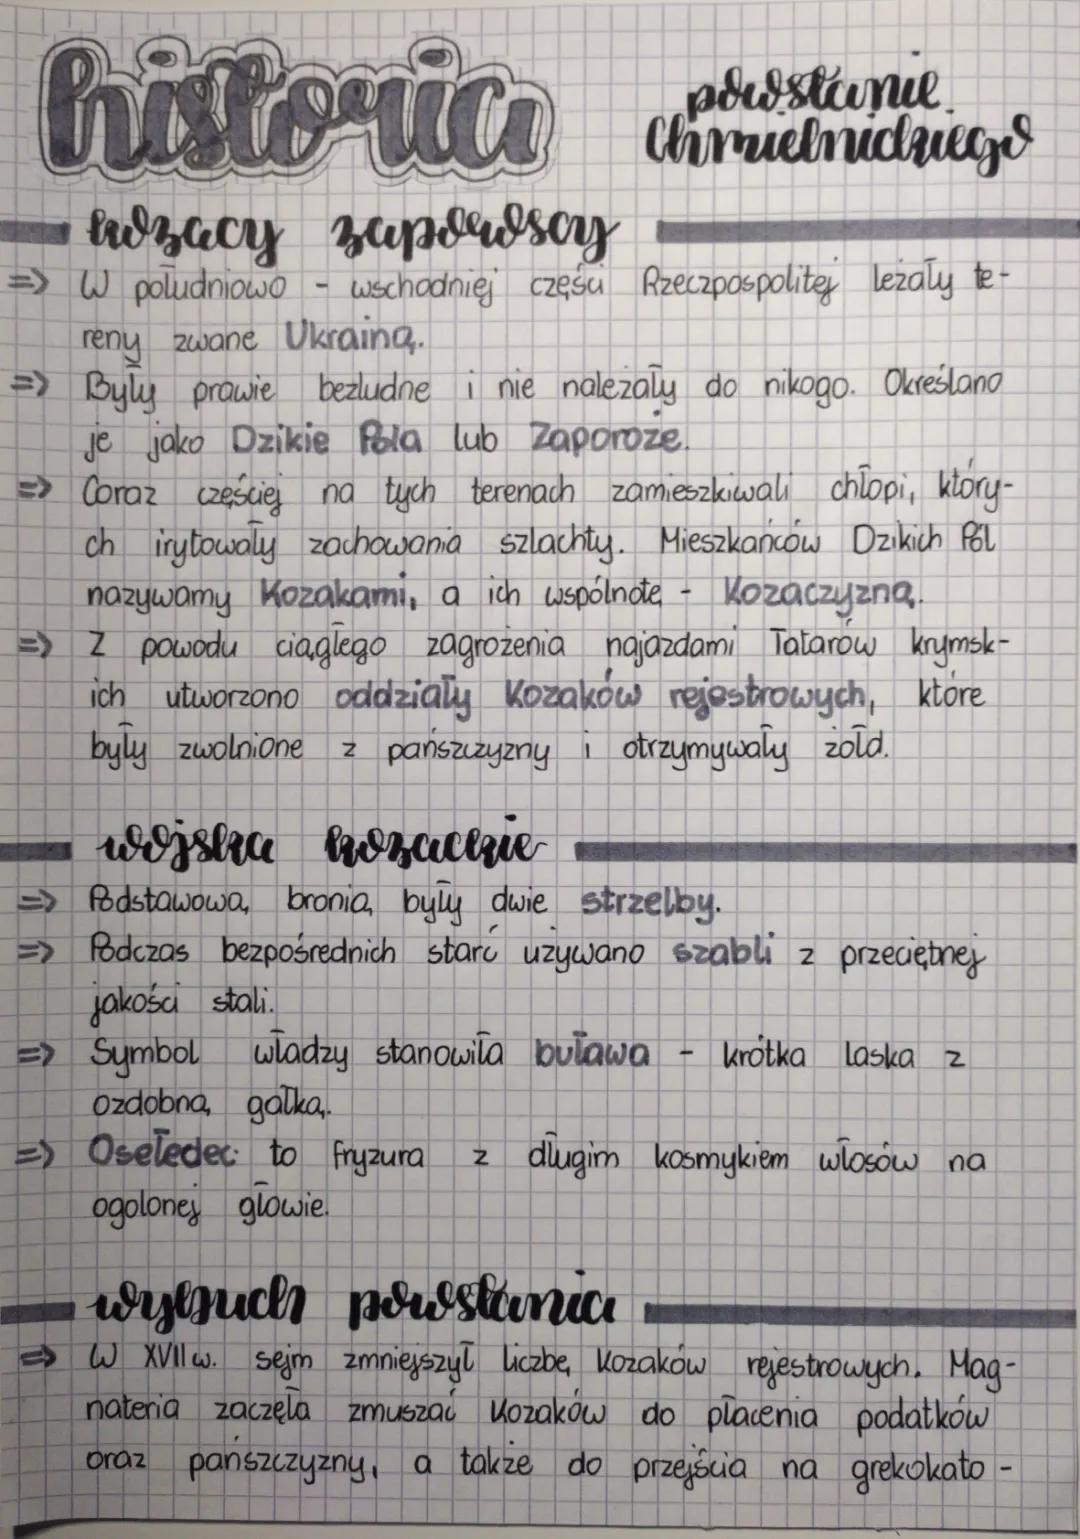 historia
powstanie
Chmielnickiego
kozacy zaporoscy
=> W południowo - wschodniej części Rzeczpospolitej leżały te-
reny zwane Ukrainą.
=> Były prawie bezludne i nie należały do nikogo. Określano
je jako Dzikie Pola lub Zaporoże.
=> Coraz częściej na tych terenach zamieszkiwali chłopi, który-
ch irytowały zachowania szlachty. Mieszkańców Dzikich Pól
nazywamy Kozakami, a ich wspólnotę - Kozaczyzną.
=> Z powodu ciągłego zagrożenia najazdami Tatarów krymsk-
ich utworzono oddziały Kozaków rejestrowych, które
były zwolnione z pańszczyzny i otrzymywały żołd.
wojska kozackie
=> Podstawową bronią były dwie strzelby.
=> Podczas bezpośrednich starć używano szabli z przeciętnej
jakości stali.
=> Symbol władzy stanowiła buława - krótka laska z
ozdobną gałką.
=> Osełedec to fryzura z długim kosmykiem włosów na
ogolonej głowie.
wybuch powstania
=> W XVII w. sejm zmniejszył liczbę Kozaków rejestrowych. Mag-
nateria zaczęła zmuszać Kozaków do płacenia podatków
oraz pańszczyzny, a także do przejścia na grekokato-